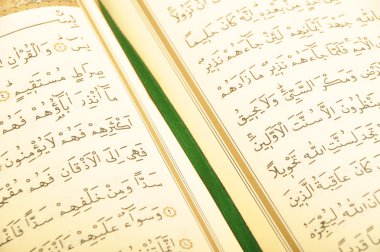 نْ تَزُولَا
إِنَّهُ كَانَ حَلِيمًا
لَئِنْ جَاءَهُمْ نَذِيرٌ
الْأُمَمِ فَلَمَّا جَاءَهُمْ نَذِيرٌ مَا زَادَهُمْ
رْضِ وَمَكْرَ السَّيِّئِ وَلَا يَحِيقُ
يَنْظُرُونَ إِلَّا سُنَّتَ الْأَوَّلِينَ
تَجِدَ لِسُنَّتِ اللَّهِ تَحْوِيلًا
كَانَ عَاقِبَةُ الَّذِينَ
كَانَ اللَّهُ لِيُعْجِزَهُ
يس
يس ۝ وَالْقُرْآنِ
صِرَاطٍ مُسْتَقِيمٍ
مَا أُنْذِرَ آبَاؤُهُمْ فَهُمْ
أَكْثَرِهِمْ فَهُمْ لَا يُؤْمِنُونَ
فَهِيَ إِلَى الْأَذْقَانِ فَهُمْ مُقْمَحُ
سَدًّا وَمِنْ خَلْفِهِمْ سَدًّا فَأَ
وَسَوَاءٌ عَلَيْهِمْ